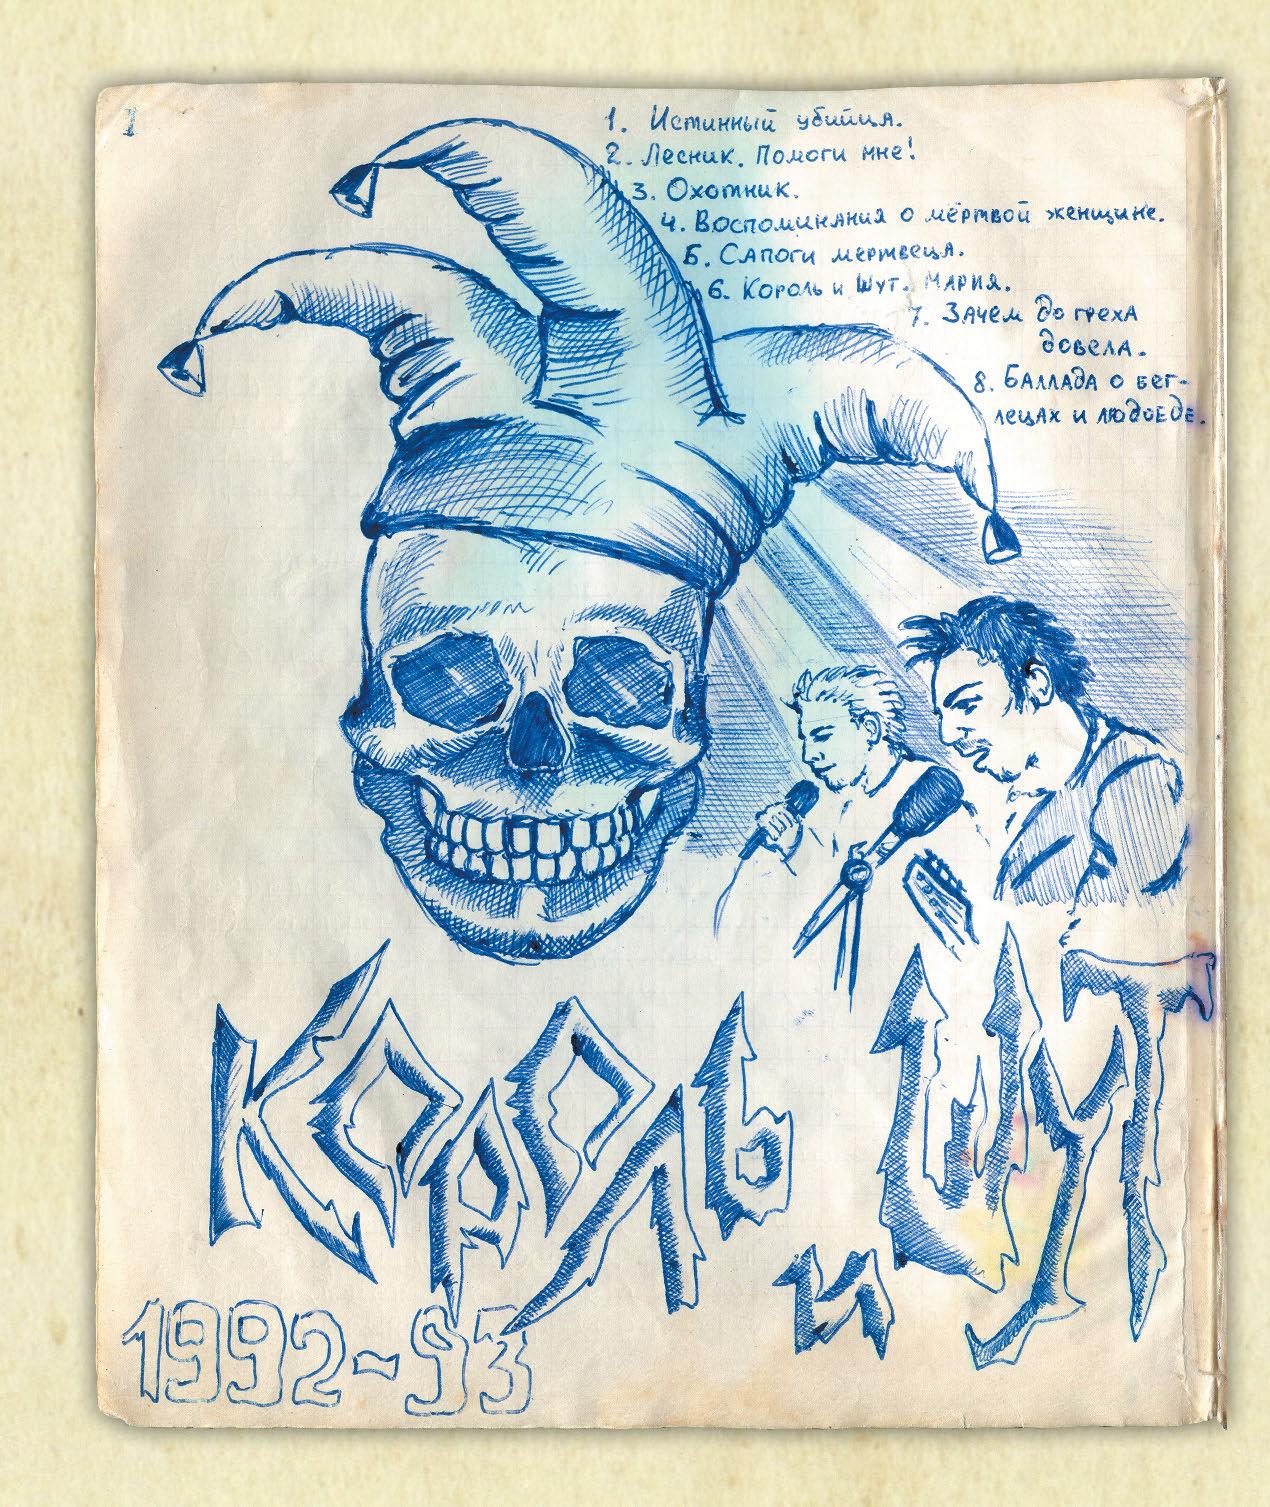 1
1. Истинный убийца.
2. Лесник. Помоги мне!
3. Охотник.
4. Воспоминания о мёртвой женщине.
5. Сапоги мертвеца.
6. Король и Шут. Мария.
7. Зачем до греха
довела.
8. Баллада о бег-
лецах и людоеде.
Король и Шут
1992-93